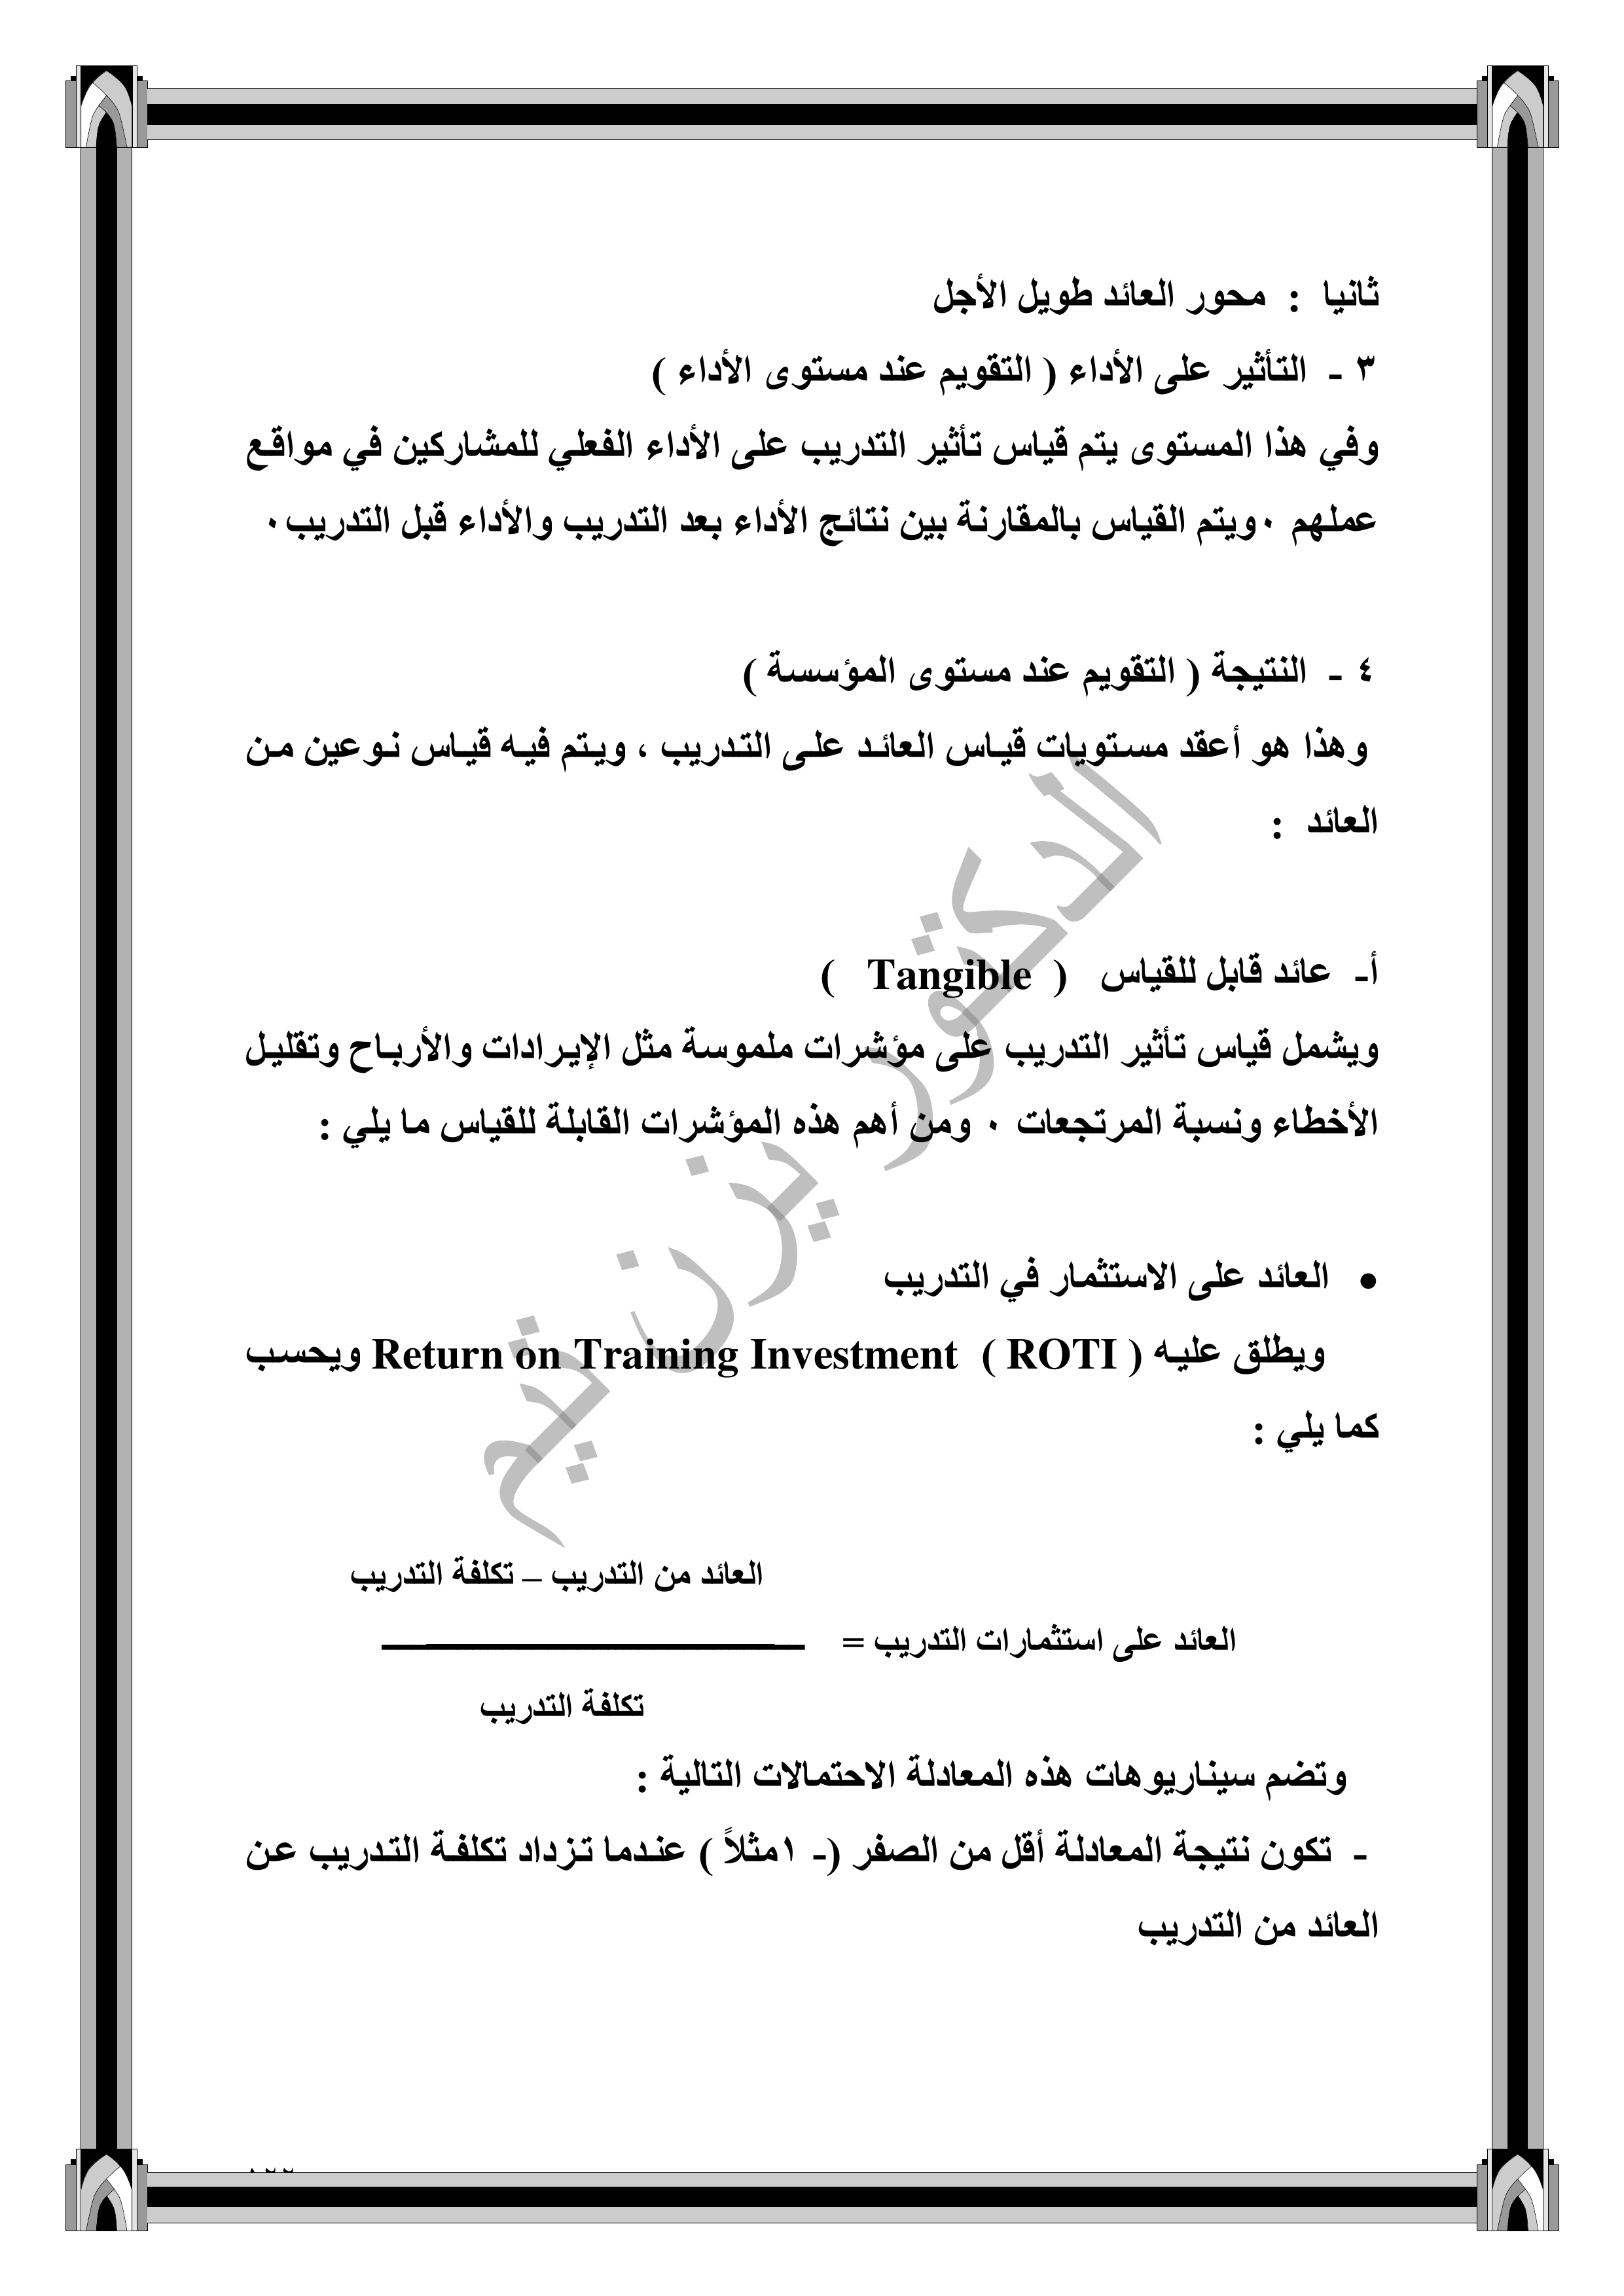 ثانيا : محور العائد طويل الأجل
٣ - التأثير على الأداء ( التقويم عند مستوى الأداء )
وفي هذا المستوى يتم قياس تأثير التدريب على الأداء الفعلي للمشاركين في مواقع
عملهم ٠ويتم القياس بالمقارنة بين نتائج الأداء بعد التدريب والأداء قبل التدريب٠
٤ - النتيجة ( التقويم عند مستوى المؤسسة )
وهذا هو أعقد مستويات قياس العائد على التدريب ، ويتم فيه قياس نوعين من
العائد :
أ- عائد قابل للقياس ( Tangible )
ويشمل قياس تأثير التدريب على مؤشرات ملموسة مثل الإيرادات والأرباح وتقليل
الأخطاء ونسبة المرتجعات ٠ ومن أهم هذه المؤشرات القابلة للقياس ما يلي :
• العائد على الاستثمار في التدريب
ويطلق عليه Return on Training Investment ( ROTI ) ويحسب
كما يلي :
العائد من التدريب – تكلفة التدريب
العائد على استثمارات التدريب =
تكلفة التدريب
وتضم سيناريوهات هذه المعادلة الاحتمالات التالية :
- تكون نتيجة المعادلة أقل من الصفر (- ١مثلاً ) عندما تزداد تكلفة التدريب عن
العائد من التدريب
الدكتور يزن تيم